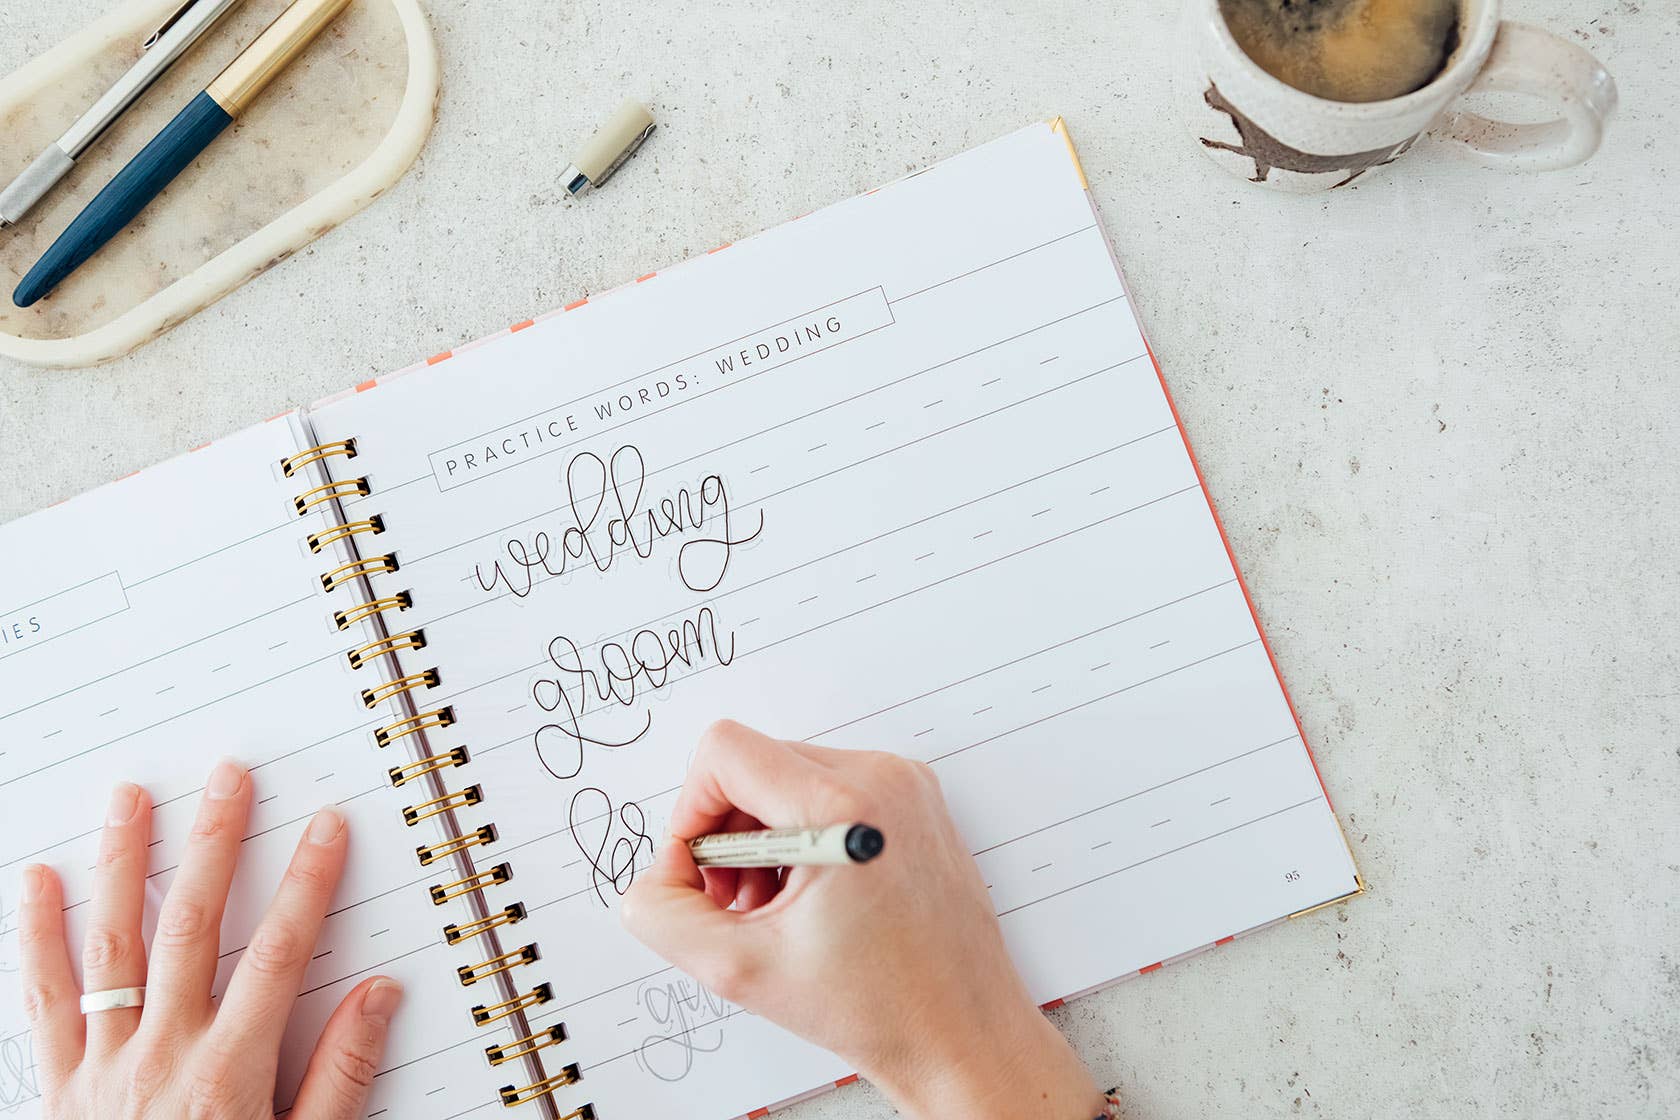 IES
PRACTICE WORDS: WEDDING
wedding
groom
br
gu
95